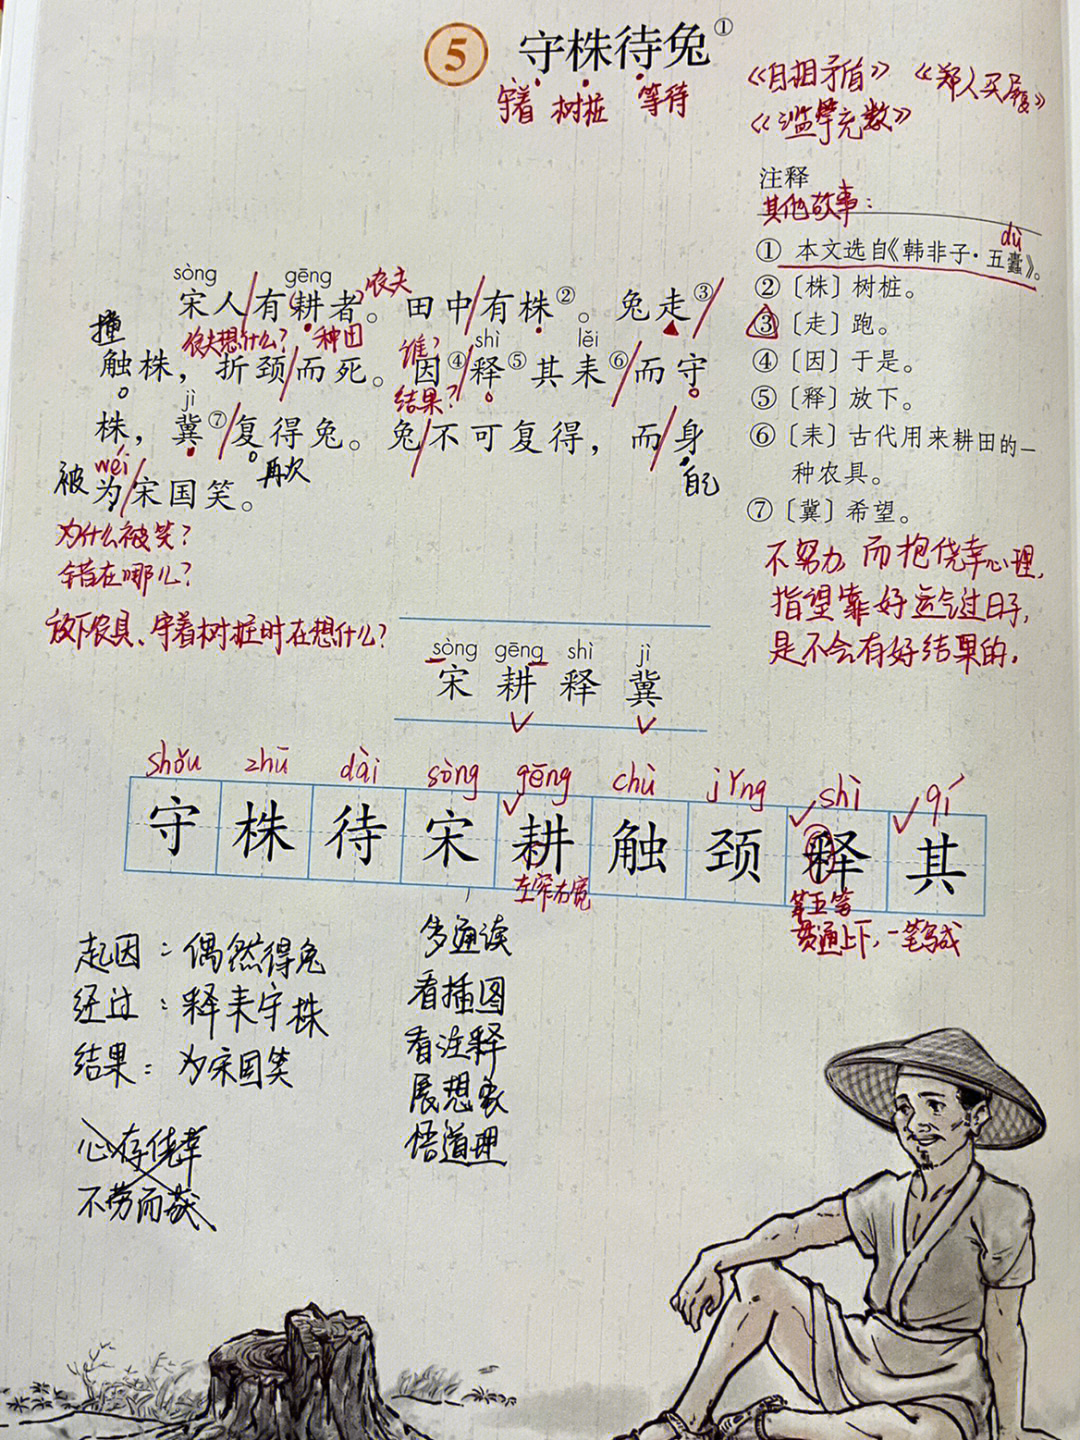 5 守株待兔①
守着 树桩 等待
《自相矛盾》 《郑人买履》
《滥竽充数》
注释
其他故事：
dù
① 本文选自《韩非子·五蠹》。
②〔株〕树桩。
③〔走〕跑。
④〔因〕于是。
⑤〔释〕放下。
⑥〔耒〕古代用来耕田的一
种农具。
⑦〔冀〕希望。
不努力，而抱侥幸心理，
指望靠好运气过日子，
是不会有好结果的。
sòng gēng
宋人/有(耕者)。田中/有株②。兔走③/
农夫
撞 农夫想什么？ 种田 谁？ shì lěi
触株，折颈/而死。因④/释⑤其耒⑥/而守
结果？
jì
株，冀⑦/复得兔。兔/不可复得，而/身
wéi 再次 自己
被 为/宋国笑。
为什么被笑？
错在哪儿？
放下农具、守着树桩时在想什么？
sòng gēng shì jì
宋 耕 释 冀
shǒu zhū dài sòng gēng chù jǐng shì qí
守 株 待 宋 耕 触 颈 释 其
左窄右宽
第五笔
贯通上下，一笔写成
起因：偶然得兔
经过：释耒守株
结果：为宋国笑
心存侥幸
不劳而获
多通读
看插图
看注释
展想象
悟道理